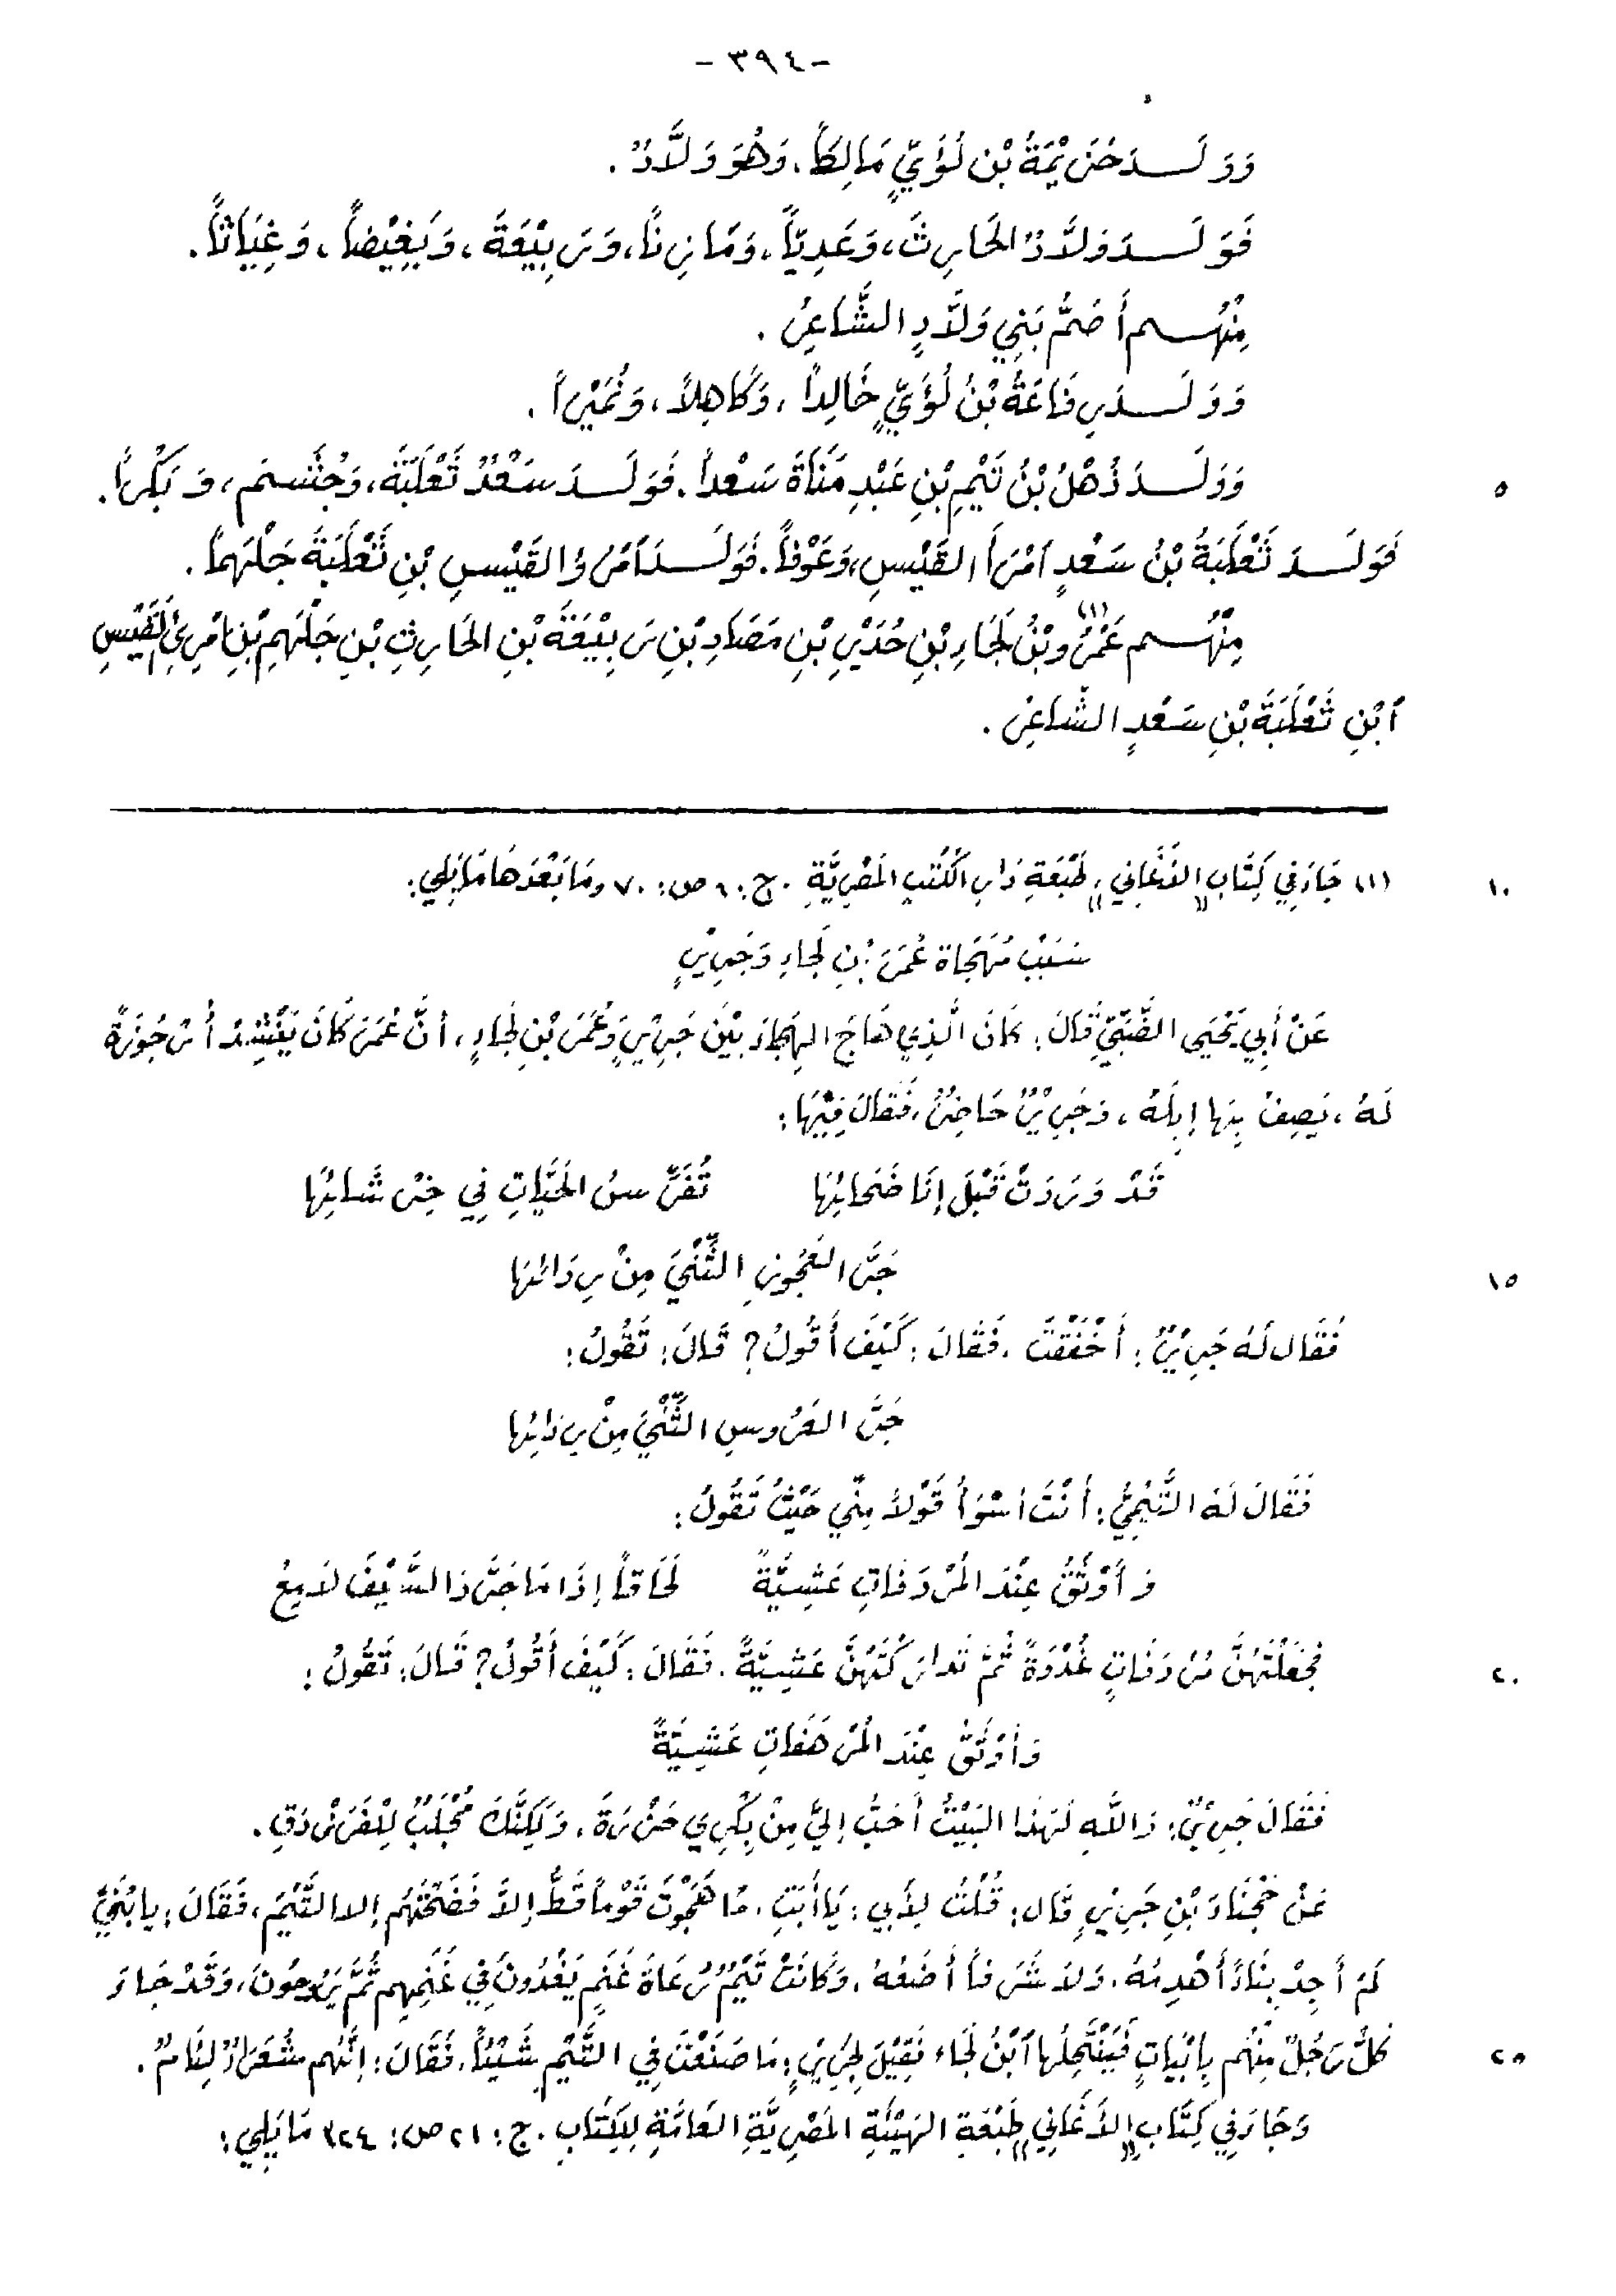 -٣٩٤-
وَوَلَدَ خُزَيْمَةُ بْنُ لُؤَيٍّ مَالِكاً، وَهُوَ وَلَّادٌ.
فَوَلَدَ وَلَّادٌ الحَارِثَ، وَعَدِيّاً، وَمَازِناً، وَرَبِيْعَةَ، وَبَغِيْضاً، وَغِيَاثاً.
مِنْهُم أَصَمُّ بَنِي وَلَّادٍ الشَّاعِرُ.
وَوَلَدَ رِفَاعَةُ بْنُ لُؤَيٍّ خَالِداً، وَكَاهِلاً، وَنُمَيْراً.
٥ وَوَلَدَ ذُهْلُ بْنُ تَيْمِ بْنِ عَبْدِ مَنَاةَ سَعْداً. فَوَلَدَ سَعْدٌ ثَعْلَبَةَ، وَجُشَمَ، وَبَكْراً.
فَوَلَدَ ثَعْلَبَةُ بْنُ سَعْدٍ ٱمْرَأَ القَيْسِ، وَعَوْفاً. فَوَلَدَ ٱمْرُؤُ القَيْسِ بْنِ ثَعْلَبَةَ جَلْهَماً.
مِنْهُم عَمْرُو(١) بْنُ لَجَاءِ بْنِ حُدَيْرِ بْنِ مَصَادِ بْنِ رَبِيْعَةَ بْنِ الحَارِثِ بْنِ جَلْهَمِ بْنِ ٱمْرِئِ القَيْسِ
ٱبْنِ ثَعْلَبَةَ بْنِ سَعْدٍ الشَّاعِرُ.
١٠ (١) جَاءَ فِي كِتَابِ «الأَغَانِي» طَبْعَةِ دَارِ الكُتُبِ المَصْرِيَّةِ. ج: ٨ ص: ٧٠ وَمَا بَعْدَهَا مَا يَلِي:
سَبَبُ مُهَجَاة عُمَرَ بْنِ لَجَاءٍ وَجَرِيْرٍ
عَنْ أَبِي يَحْيَى الضَّبِّيِّ قَالَ: كَانَ الَّذِي هَاجَ الهِجَاءَ بَيْنَ جَرِيْرٍ وَعُمَرَ بْنِ لَجَاءٍ، أنَّ عُمَرَ كَانَ يُنْشِدُ أُرْجُوزَةً
لَهُ، يَصِفُ بِهَا إِبِلَهُ، وَجَرِيْرٌ حَاضِرٌ، فَقَالَ فِيْهَا:
قَدْ وَرَدَتْ قَبْلَ إِنَا ضَحَائِهَا تُفَرِّسُ الحَيَّاتِ فِي خِرْشَائِهَا
١٥ جَرَّ العَجُوزِ الثِّنْيَ مِنْ رِدَائِهَا
فَقَال لَهُ جَرِيْرٌ: أَخْفَقْتَ. فَقَالَ: كَيْفَ أَقُولُ؟ قَالَ: تَقُولُ:
جَرَّ العَرُوسِ الثِّنْيَ مِنْ رِدَائِهَا
فَقَالَ لَهُ التَّيْمِيُّ: أَنْتَ أَسْوَأُ قَوْلاً مِنِّي حَيْثُ تَقُولُ:
وَأَوْثَقُ عِنْدَ المُرْدَفَاتِ عَشِيَّةً لَحَاقاً إِذَا مَا جَرَّدَ السَّيْفَ لَامِعُ
٢٠ فَجَعَلْتَهُنَّ مُرْدَفَاتٍ غُدْوَةً ثُمَّ تَدَارَكْتَهُنَّ عَشِيَّةً. فَقَالَ: كَيْفَ أَقُولُ؟ قَالَ: تَقُولُ:
وَأَوْثَقُ عِنْدَ المُرْهَفَاتِ عَشِيَّةً
فَقَالَ جَرِيْرٌ: وَاللَّهِ لَهَذَا البَيْتُ أَحَبُّ إِلَيَّ مِنْ بِكْرِي حَزْرَةَ، وَلَكِنَّكَ مُجْلِبٌ لِلْفَرَزْدَقِ.
عَنْ حَجْنَاءَ بْنِ جَرِيْرٍ قَال: قُلْتُ لِأَبِي: يَا أَبَتِ، مَا هَجَوْتَ قَوْماً قَطُّ إِلاَّ فَضَحْتَهُم إلا التَّيْمَ، فَقَالَ: يا بُنَيَّ
لَمْ أَجِدْ بِنَاءً أَهْدِمُهُ، وَلاَ شَرَفاً أَضَعُهُ، وَكَانَتْ تَيْمٌ رُعَاةَ غَنَمٍ يَغْدُونَ فِي غَنَمِهِم ثُمَّ يَرُوحُونَ، وَقَدْ جَاءَ
٢٥ كُلُّ رَجُلٍ مِنْهُم بِأَبْيَاتٍ فَيَنْتَحِلُها ٱبْنُ لَجَاء فَقِيْلَ لِجَرِيْرٍ: مَا صَنَعْتَ فِي التَّيْمِ شَيْئاً. فَقَالَ: إِنَّهُم شُعَرَاءُ لِئَامٌ.
وَجَاءَ فِي كِتَابِ «الأَغَانِي» طَبْعَةِ الهَيْئَةِ المَصْرِيَّةِ العَامَّةِ لِلكِتَابِ. ج: ٢١ ص: ٣٢٤ مَا يَلِي: